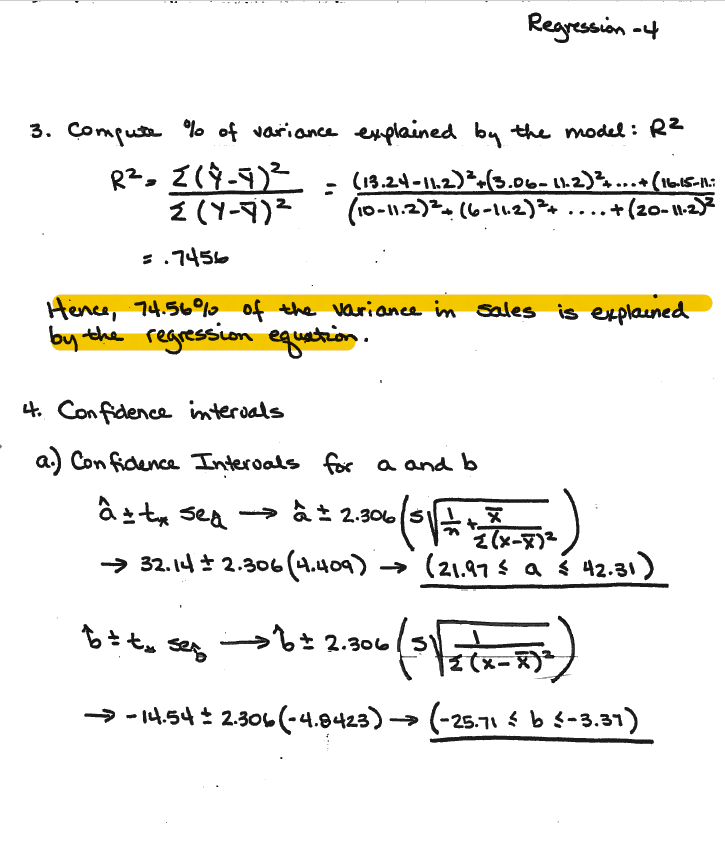 Regression -4
3. Compute % of variance explained by the model: R²
R² = Σ(Ŷ-Ȳ)² / Σ(Y-Ȳ)² = (13.24-11.2)²+(3.06-11.2)²+...+(16.15-11.2 / (10-11.2)²+(6-11.2)²+....+(20-11.2)²
= .7456
Hence, 74.56% of the variance in sales is explained
by the regression equation.
4. Confidence intervals
a.) Confidence Intervals for a and b
â ± t* seₐ → â ± 2.306 (s√(1/n + x̄/Σ(x-x̄)²))
→ 32.14 ± 2.306 (4.409) → (21.97 ≤ a ≤ 42.31)
b̂ ± t* se_b → b̂ ± 2.306 (s√(1/Σ(x-x̄)²))
→ -14.54 ± 2.306 (-4.8423) → (-25.71 ≤ b ≤ -3.37)